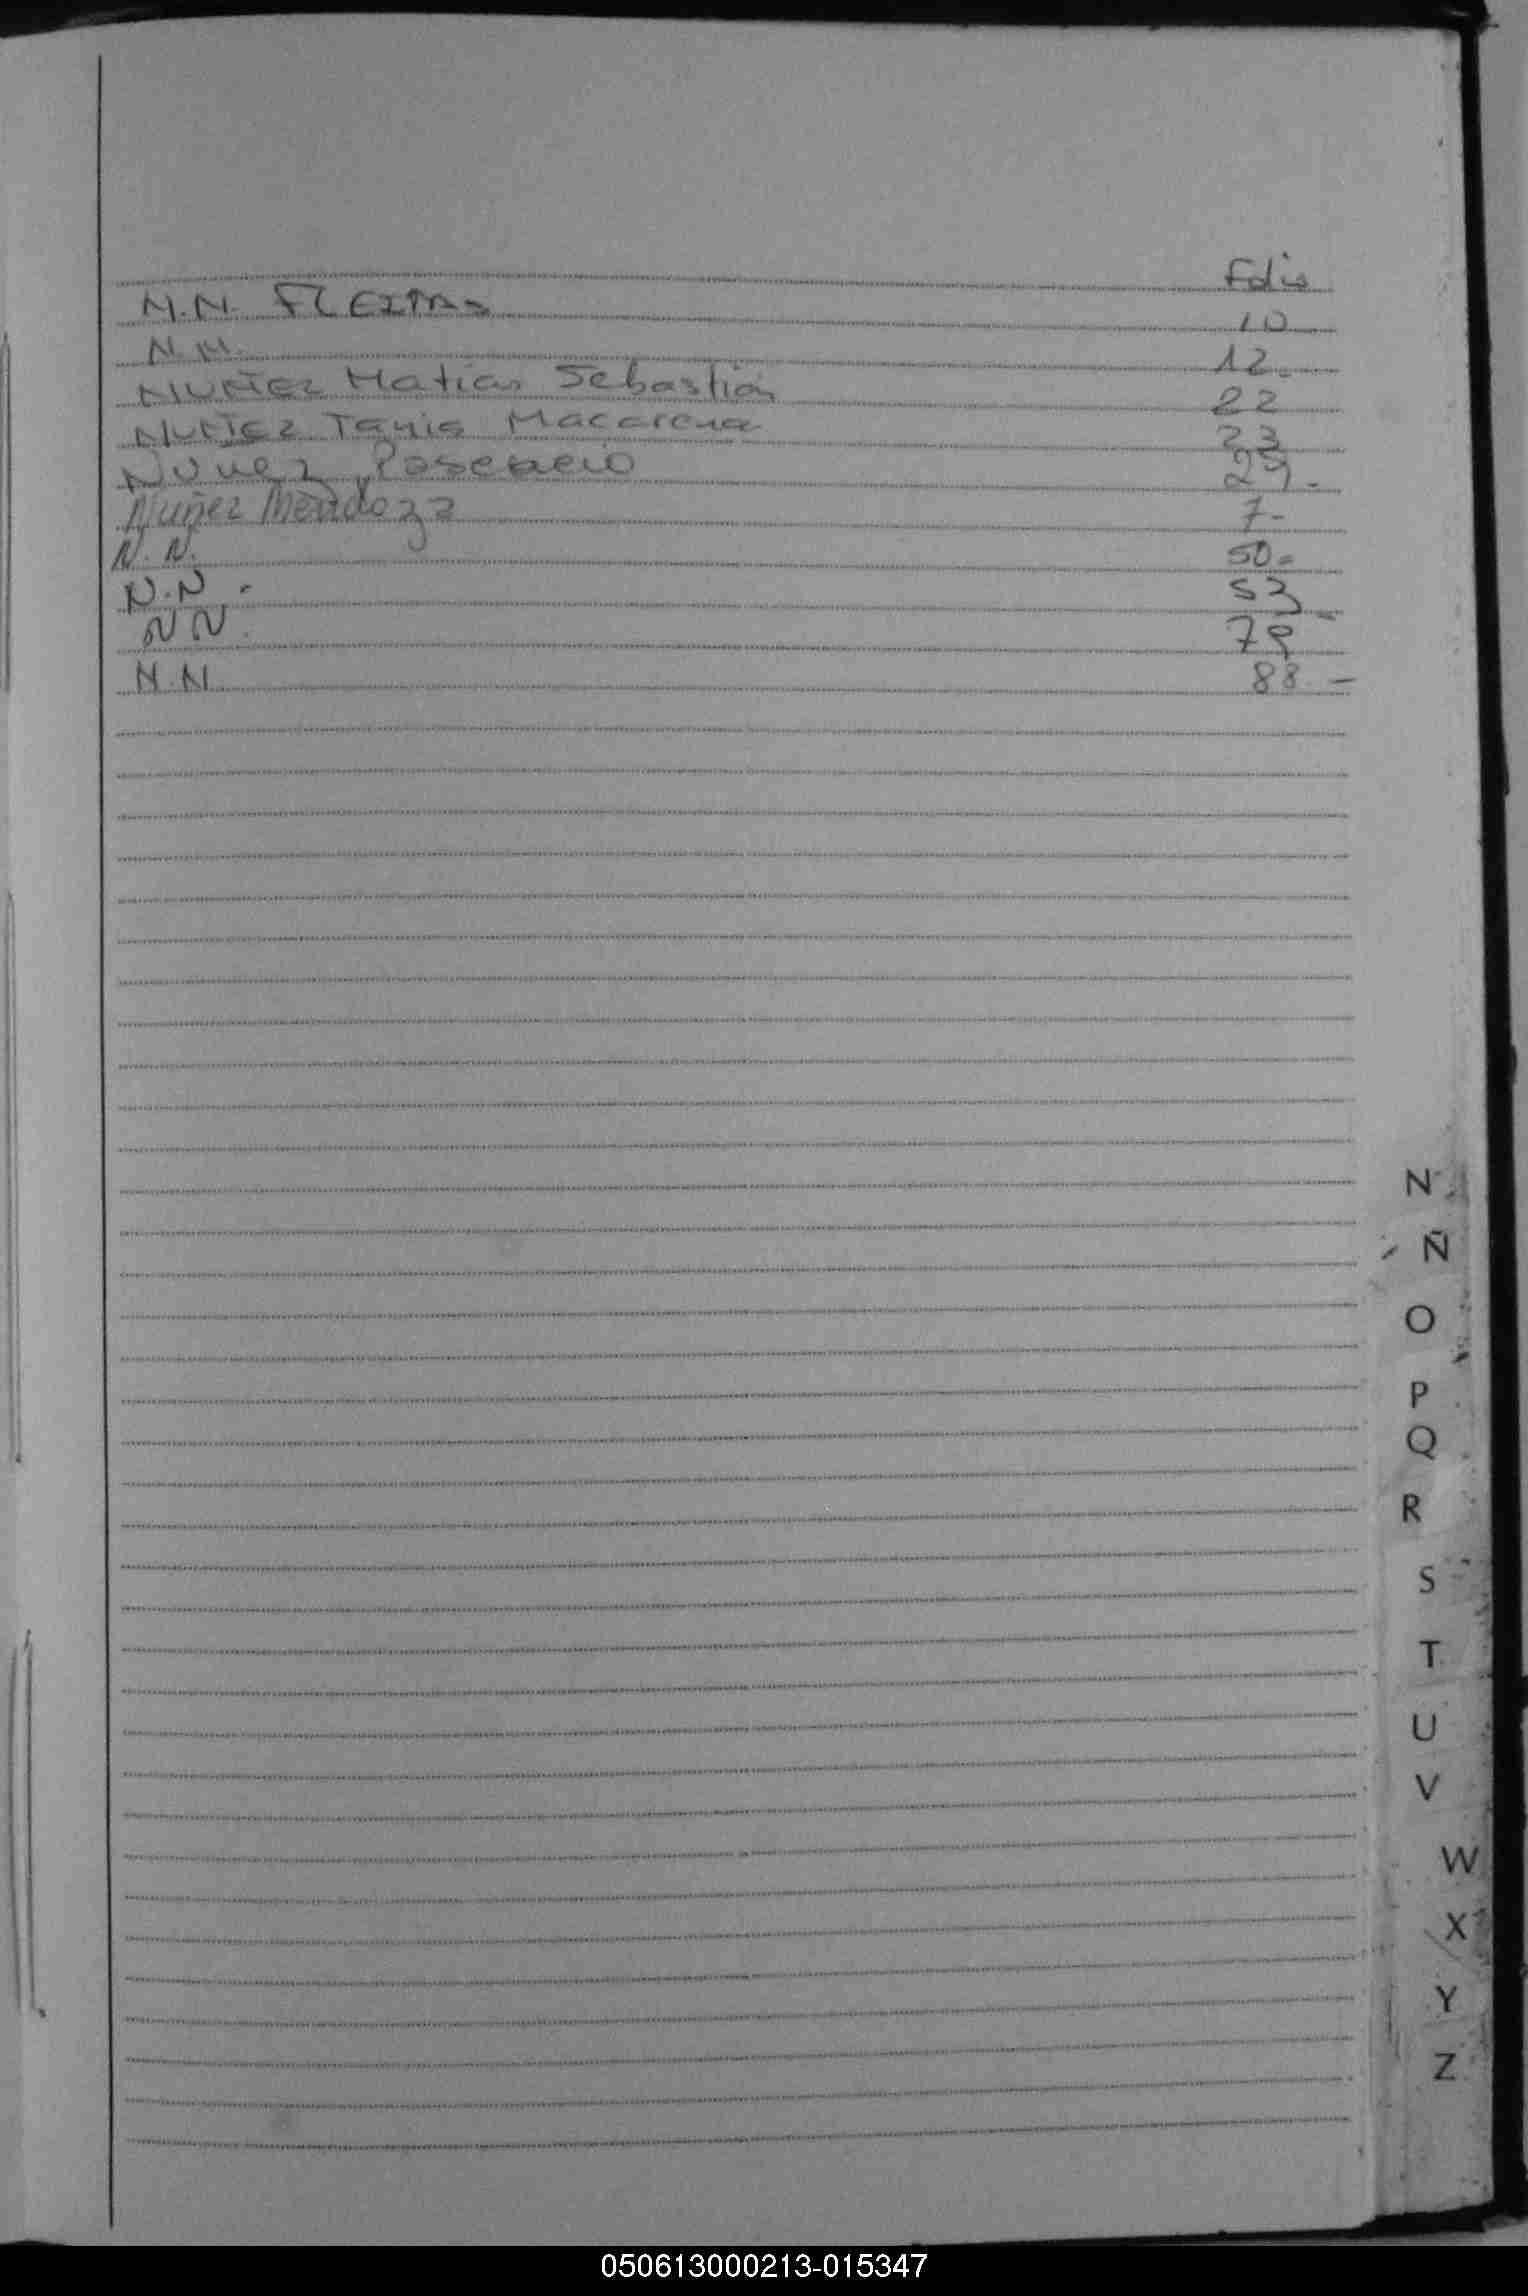 Folio
N.N. FLEITAS 10
N.N. 12.
NUÑEZ Matias Sebastián 22
NUÑEZ Tania Macarena 23
Nuñez 29.
Nuñez Mendoza 7-
N.N. 50.
N.N. 53-
NN. 79
N.N. 88-
N
Ñ
O
P
Q
R
S
T
U
V
W
X
Y
Z
050613000213-015347